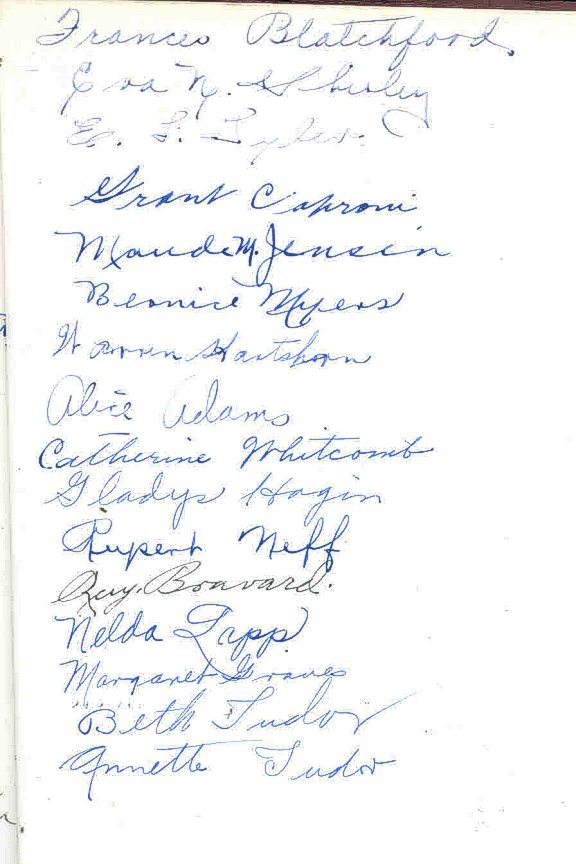 Frances Blatchford.
Eva N. Shirley
E. L. Tyler.
Grant Caproni
Maude M. Jensen
Bernice Myers
Warren Hartshorn
Alice Adams
Catherine Whitcomb
Gladys Hagin
Rupert Neff
Boavard.
Nelda Tapp
Margaret Graves
Beth Tudor
Annette Tudor